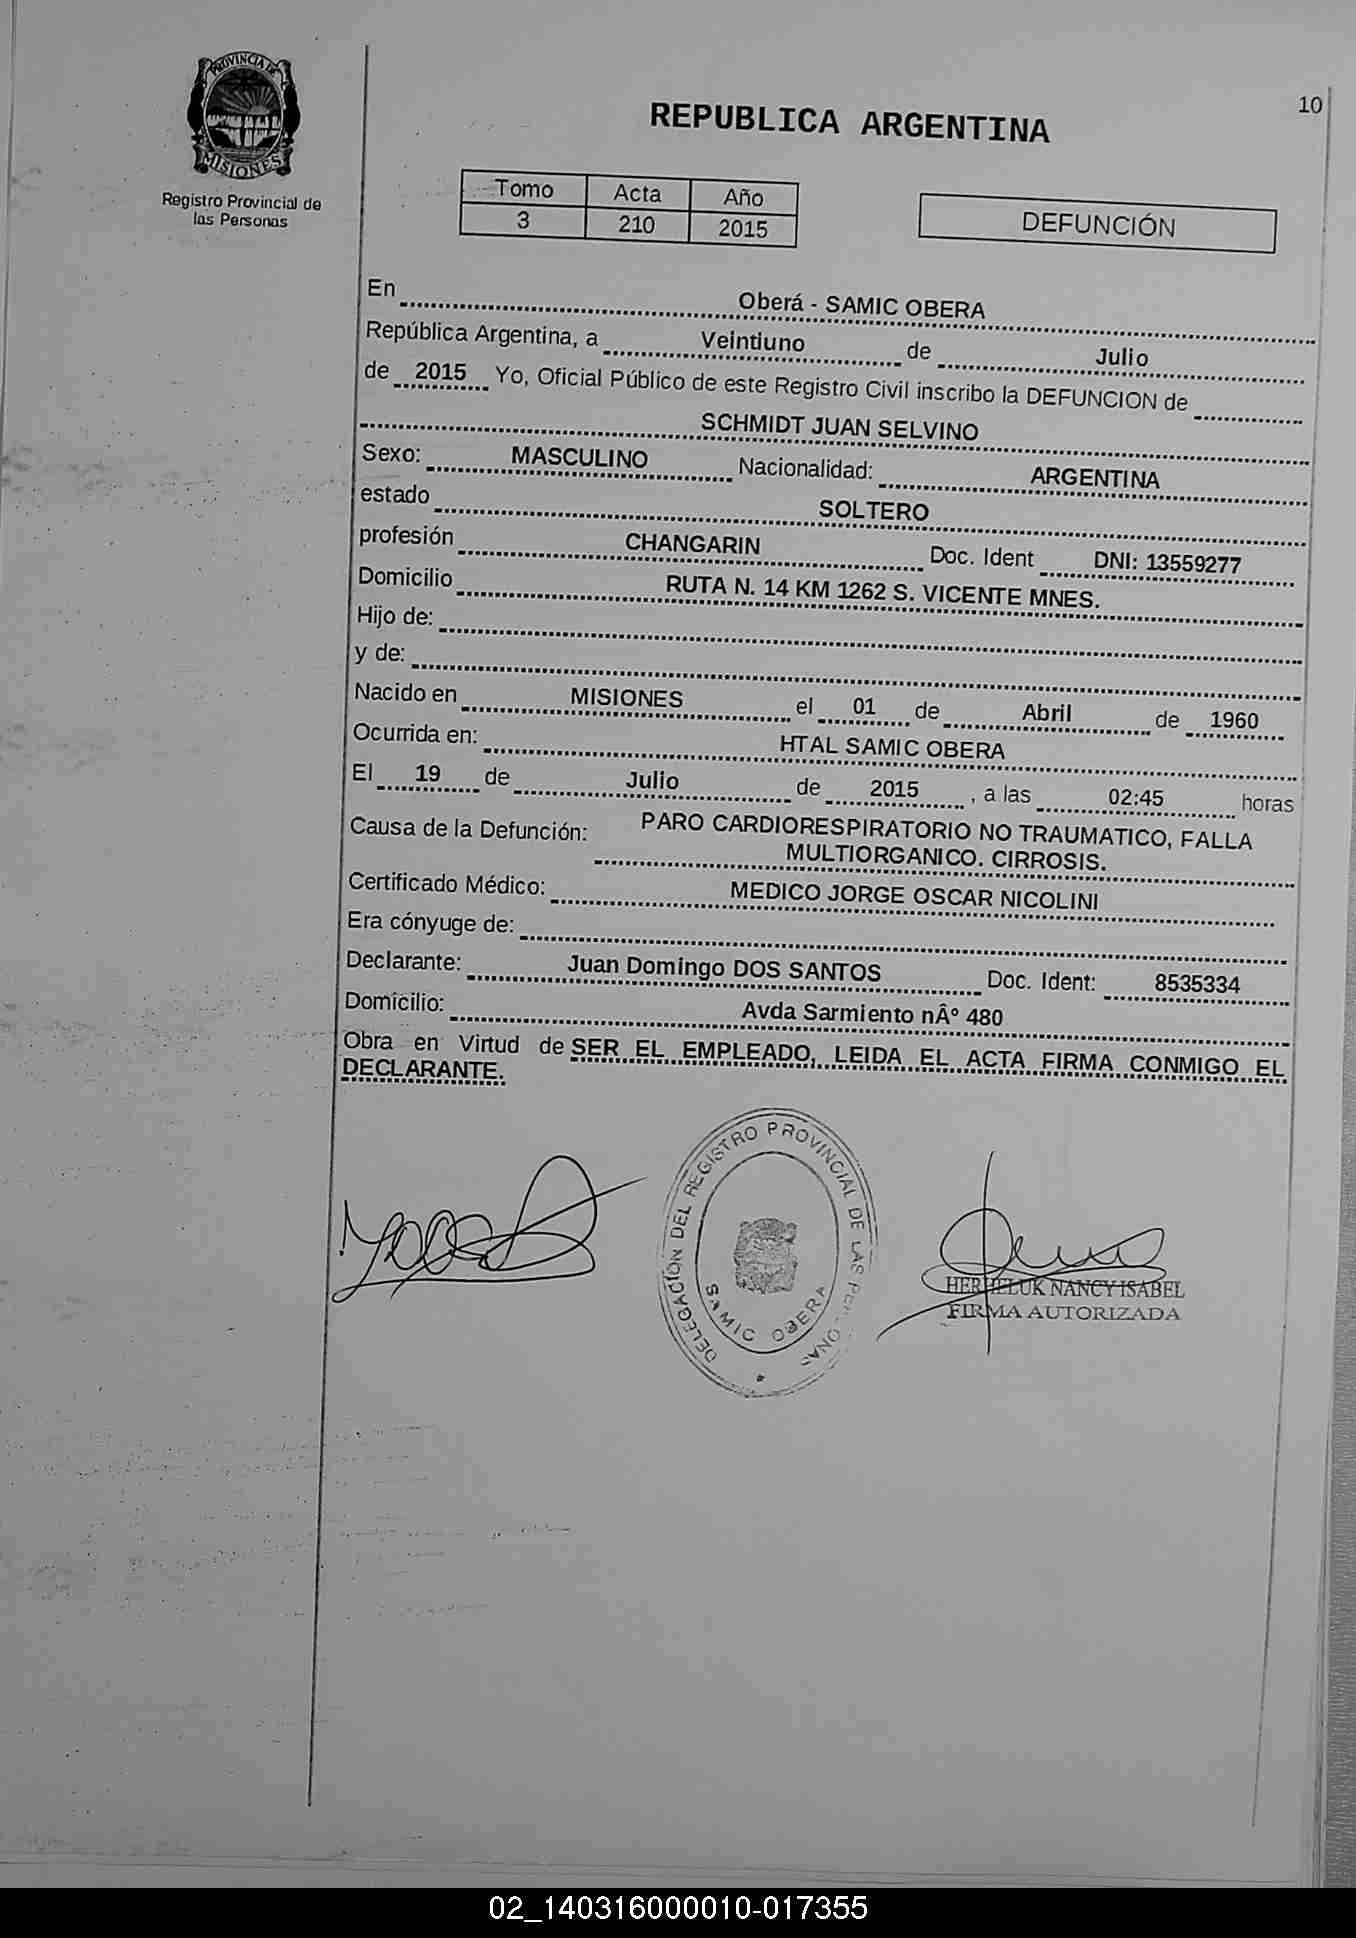 PROVINCIA DE
MISIONES
Registro Provincial de
las Personas
10
REPUBLICA ARGENTINA
Tomo Acta Año
3 210 2015
DEFUNCIÓN
En Oberá - SAMIC OBERA
República Argentina, a Veintiuno de Julio
de 2015 Yo, Oficial Público de este Registro Civil inscribo la DEFUNCION de
SCHMIDT JUAN SELVINO
Sexo: MASCULINO Nacionalidad: ARGENTINA
estado SOLTERO
profesión CHANGARIN Doc. Ident DNI: 13559277
Domicilio RUTA N. 14 KM 1262 S. VICENTE MNES.
Hijo de:
y de:
Nacido en MISIONES el 01 de Abril de 1960
Ocurrida en: HTAL SAMIC OBERA
El 19 de Julio de 2015 , a las 02:45 horas
Causa de la Defunción: PARO CARDIORESPIRATORIO NO TRAUMATICO, FALLA
MULTIORGANICO. CIRROSIS.
Certificado Médico: MEDICO JORGE OSCAR NICOLINI
Era cónyuge de:
Declarante: Juan Domingo DOS SANTOS Doc. Ident: 8535334
Domicilio: Avda Sarmiento nÂº 480
Obra en Virtud de SER EL EMPLEADO, LEIDA EL ACTA FIRMA CONMIGO EL
DECLARANTE.
DELEGACIÓN DEL REGISTRO PROVINCIAL DE LAS PERSONAS
SAMIC OBERA
HERHELUK NANCY ISABEL
FIRMA AUTORIZADA
02_140316000010-017355